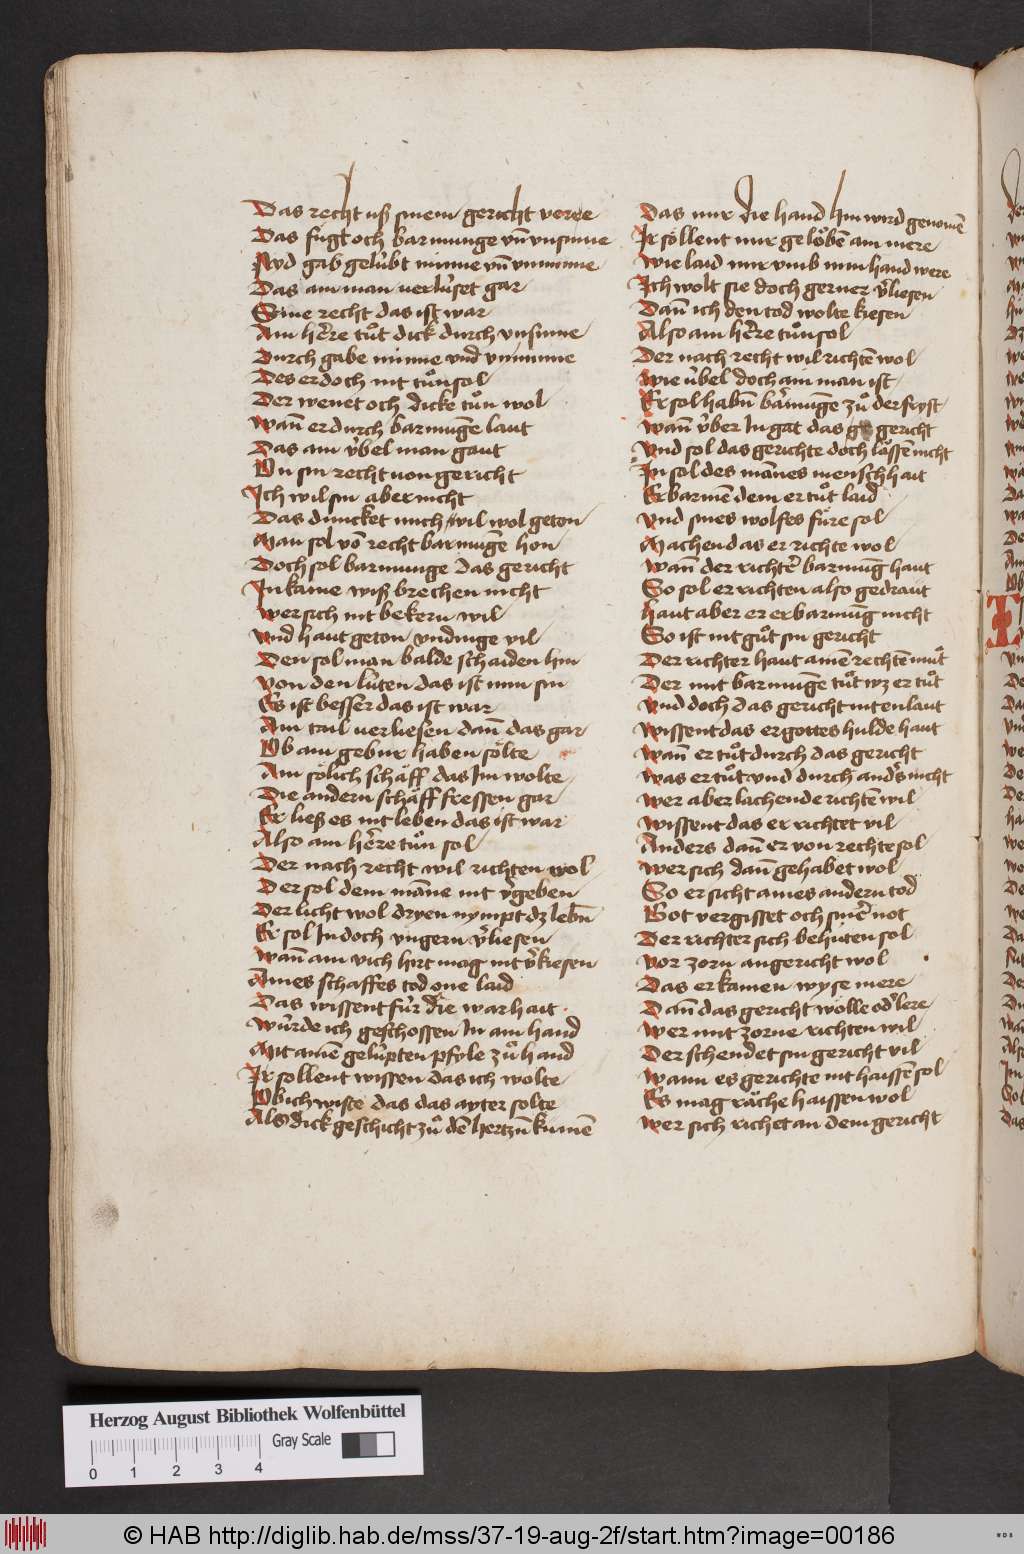 Das recht uß sinem gericht verre
Das fúgt och barmunge vn̄ vnsinne
Nyd gab gelúbt minne vn̄ vnminne
Das ain man verlúset gar
Sine recht das ist war
Ain he̅re tůt dick durch vnsinne
Durch gabe minne vnd vnminne
Des er doch nit tůn sol
Der wenet och dicke tůn wol
Wan̄ er durch barmung̅e laut
Das ain v́bel man gaut
On sin recht von gericht
Ich wil sin aber nicht
Das duncket mich wil wol geton
Man sol vō recht barmung̅e hon
Doch sol barmunge das gericht
In kaine wiß brechen nicht
Wer sich nit bekern wil
Vnd haut geton vndinge vil
Den sol man balde schaiden hin
Von den lúten das ist min sin
Es ist besser das ist war
Ain tail verliesen dan̄ das gar
Ob ain gebur haben sölte
Ain sölich schäff das Im wolte
Die andern schäff fressen gar
Er ließ es nit leben das ist war
Also ain he̅re tůn sol
Der nach recht wil richten wol
Der sol dem man̅e nit v̓geben
Der licht wol dryen nympt dz lebn̄
Er sol In doch vngern v̓liesen
Wan̄ ain vich hirt mag nit v̓kiesen
Aines schaffes tod one laid
Das wissent fúr die warhait
Wúrde ich geschossen In ain hand
Mit aine̅ gelúpten pfyle zů hand
Ir sollent wissen das ich wolte
Ob ich wiste das das ayter solte
Als dick geschicht zů de̅ hertzn̄ kumen̄
Das mir die hand hin wird genomen̄
Ir söllent mir gelöben̄ ain mere
Wie laid mir vmb min hand were
Ich wolt sie doch gerner v̓liesen
Dan̄ ich den tod wolte kiesen
Also ain he̅re tůn sol
Der nach recht wil richten̄ wol
Wie v́bel doch ain man ist
Er sol habn̄ barmung̅e zů der fryst
Wan̄ v́ber In gat das gericht
Vnd sol das gerichte doch lässen̄ nicht
In sol des man̅es menschhait
Erbarmen̄ dem er tůt laid
Vnd sines wolfes füre sol
Machen das er richte wol
Wan̄ der richte̓ barmung̅ haut
So sol er richten also gedraut
Haut aber er erbarmung̅ nicht
So ist nit gůt sin gericht
Der richter haut aine̅ rechten̄ můt
Der mit barmung̅e tůt wz er tůt
Vnd doch das gericht nit enlaut
Wissent das er gottes hulde haut
Wan̄ er tůt durch das gericht
Was er tůt vnd durch and̓s nicht
Wer aber lachende richten̄ wil
Wissent das er richtet vil
Anders dan̄ er von rechte sol
Wer sich dan̄ gehabet wol
So er sicht aines andern tod
Got vergisset och sine̓ not
Der richter sich behúten sol
Vor zorn an gericht wol
Das er kainen wyse mere
Dan̄ das gericht wölle od̓ lere
Wer mit zorne richten wil
Der schendet sin gericht vil
Wann es gerichte nit haissen̄ sol
Es mag räche haissen wol
Wer sich richet an dem gericht
Herzog August Bibliothek Wolfenbüttel
Gray Scale
0 1 2 3 4
© HAB http://diglib.hab.de/mss/37-19-aug-2f/start.htm?image=00186
WDB